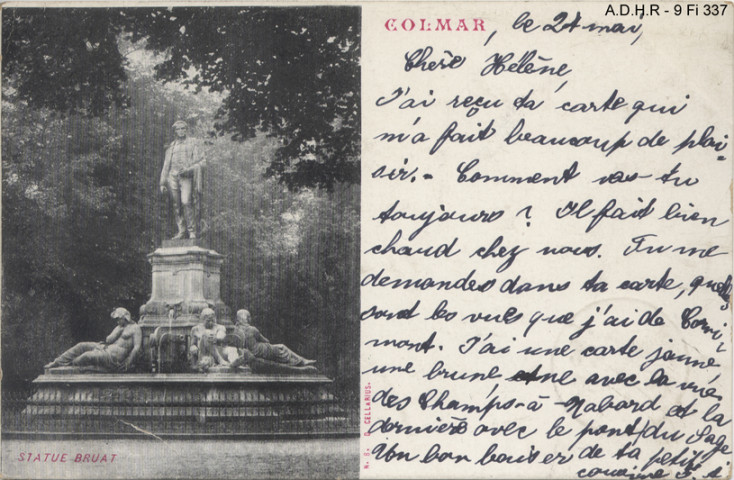 A.D.H.R - 9 Fi 337
COLMAR
, le 24 mai,
Chère Hélène,
J'ai reçu ta carte qui
m'a fait beaucoup de plai-
sir. - Comment vas-tu
toujours ? Il fait bien
chaud chez nous. Tu me
demandes dans ta carte, quelles
sont les vues que j'ai de
mont. J'ai une carte jaune
une brune et une avec la vue
des Champs-à- Nabord et la
dernière avec le pont du Sage
Un bon baiser de ta petite
cousine
STATUE BRUAT
CELLARIUS.